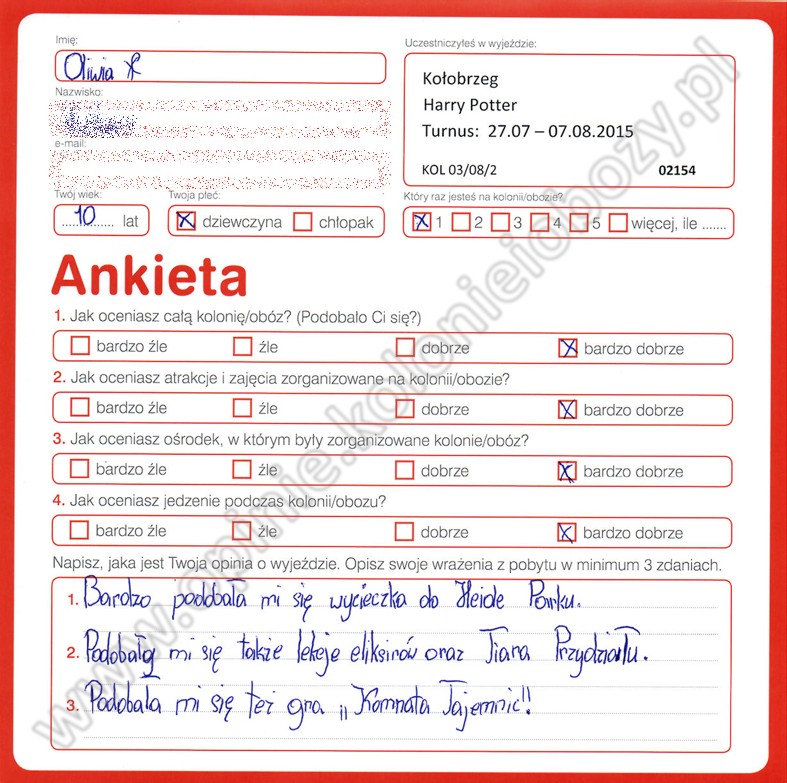 Imię:
Oliwia
Uczestniczyłeś w wyjeździe:
Kołobrzeg
Harry Potter
Turnus: 27.07 – 07.08.2015
KOL 03/08/2 02154
Nazwisko:
e-mail:
Twój wiek: Twoja płeć: Który raz jesteś na kolonii/obozie?
10 lat dziewczyna chłopak 1 2 3 4 5 więcej, ile .......
Ankieta
1. Jak oceniasz całą kolonię/obóz? (Podobało Ci się?)
bardzo źle źle dobrze bardzo dobrze
2. Jak oceniasz atrakcje i zajęcia zorganizowane na kolonii/obozie?
bardzo źle źle dobrze bardzo dobrze
3. Jak oceniasz ośrodek, w którym były zorganizowane kolonie/obóz?
bardzo źle źle dobrze bardzo dobrze
4. Jak oceniasz jedzenie podczas kolonii/obozu?
bardzo źle źle dobrze bardzo dobrze
Napisz, jaka jest Twoja opinia o wyjeździe. Opisz swoje wrażenia z pobytu w minimum 3 zdaniach.
1. Bardzo podobała mi się wycieczka do Heide Parku.
2. Podobały mi się także lekcje eliksirów oraz Tiara Przydziału.
3. Podobała mi się też gra „Komnata Tajemnic"!
www.opinie.kolonieiobozy.pl